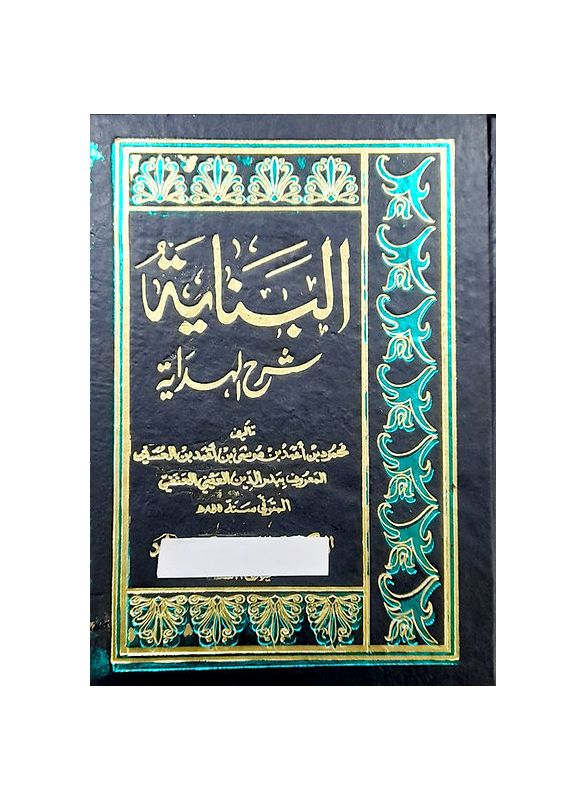 البَنَاية
شرح الهداية
تأليف
محمود بن أحمد بن موسى بن أحمد بن الحسين
المعروف ببدر الدين العيني الحنفي
المتوفى سنة ٨٥٥هـ